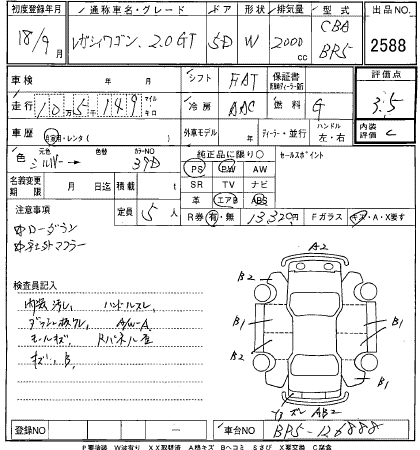 初度登録年月 通称車名・グレード ドア 形状 排気量 型式 出品NO.
18/9月 レガシィワゴン. 2.0GT 5D W 2000cc CBA BP5 2588
車検 年 月 シフト FAT 保証書 評価点
走行 10万5千149 マイル キロ 冷房 AAC 燃料 G 3.5
車歴 自家用・レンタ( ) 外車モデル ディーラー・並行 ハンドル 左・右 内装評価 C
色 元色 シルバー → 色替 カラーNO 39D 純正品に限り○ セールスポイント
PS PW AW
名義変更期限 月 日迄 積載 t SR TV ナビ
革 エアB ABS
注意事項 定員 5人 R券 有・無 13,320円 Fガラス キズ・A・X要す
中ローダウン
中社外マフラー
検査員記入
内装汚レ ハンドルスレ
A/W-A
キズ, B,
A2
B2 B2
B1 B1
B2
B1
AB2
登録NO 車台NO BP5-126888
P要塗装 W波有り XX取替済 A線キズ Bヘコミ Sさび X要交換 C腐食